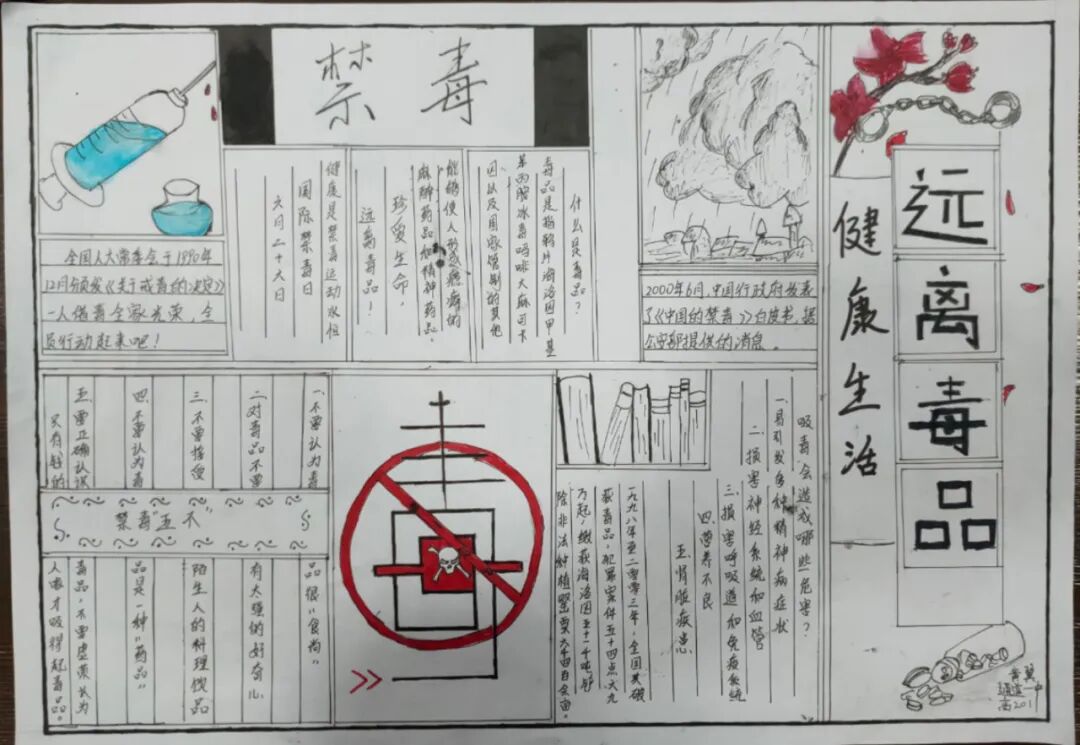 禁 毒
全国人大常委会于1990年
12月颁发《关于戒毒的决定》
一人借毒全家光荣，全
员行动起来吧！
什么是毒品？
毒品是指鸦片海洛因甲基
苯丙胺冰毒吗啡大麻可卡
因以及国家管制的其他
能够使人形成瘾癖的
麻醉药品和精神药品.
珍爱生命，
远离毒品！
健康是禁毒运动永恒
国际禁毒日
六月二十六日
2000年6月，中国行政府发表
了《中国的禁毒》白皮书，据
公安部提供的消息。
远离毒品
健康生活
禁毒"五不"
一、不要认为毒
品很"食尚"
二、对毒品不要
有太强的好奇心
三、不要接受
陌生人的料理馈品
四、不要认为毒
品是一种"药品"
五、要正确认识
毒品，不要虚荣认为
只有钱的
人才吸得起毒品。
吸毒会造成哪些危害？
一、易引发多种精神病症状
二、损害神经系统和血管
三、损害呼吸道和免疫系统
四、营养不良
五、肾脏疾患
一九九八年至二零零三年，全国共破
获毒品，犯罪案件五十四点六九
万起，缴获海洛因五十一个吨铲
除非法种植罂粟六千四百余亩。
通道一中
高201